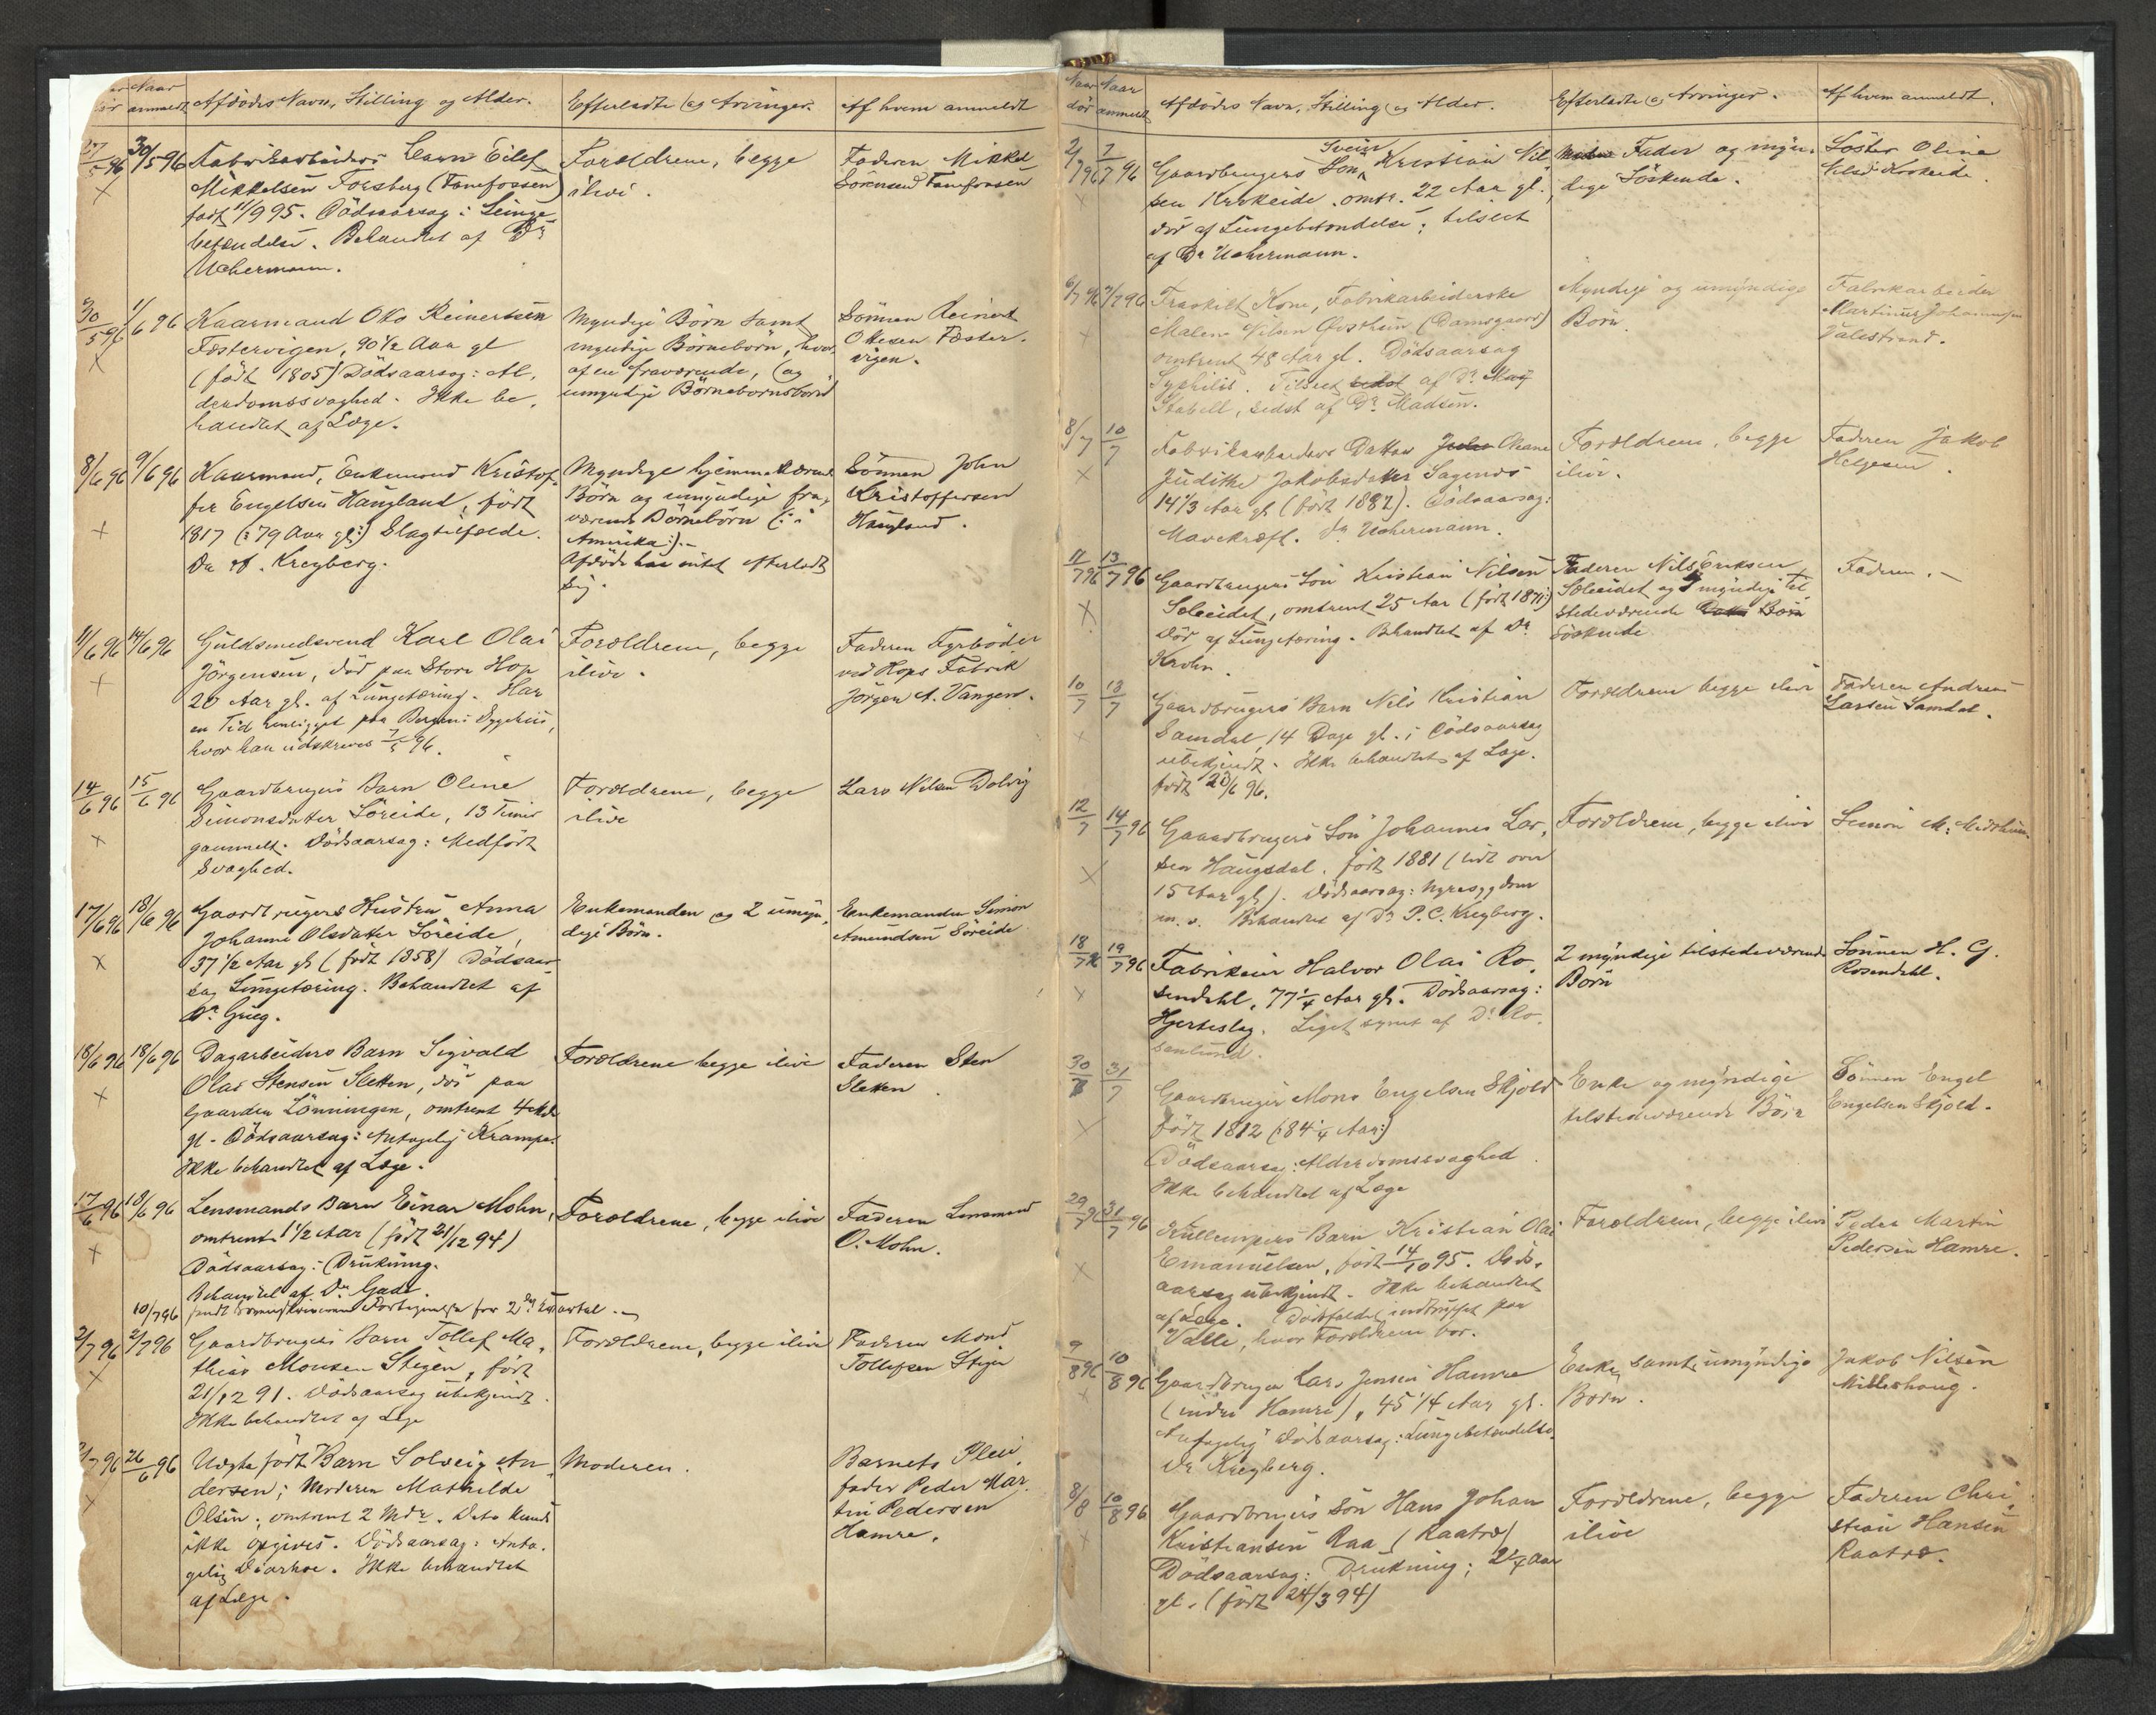 Naar
anmeldt Afdødes Navn, Stilling og Alder. Efterladte og Arvinger. Af hvem anmeldt
27/5 96 30/5 96 Fabrikarbeiders Barn Eilef Forældrene, begge Faderen Mikkel
Mikkelsen Forsberg (Fanefossen) ilive. Sörensen Fanefossen
født 11/9 95. Dödsaarsag: Lunge
betændelse. Behandlet af Dr
Uchermann.
30/5 96 1/6 96 Kaarmand Ole Reinertsen Myndige Börn samt Sönnen Reinert
90 1/2 Aar gl myndige Börnebörn, hvor
(født 1805) Dödsaarsag: Al, af en fraværende, og
derdomssvaghed. Ikke be, umyndige Börnebörnsbörn
handlet af Læge.
8/6 96 9/6 96 Kaarmand, Enkemand Kristof Myndige hjemmeværende Sönnen John
fer Engelsen Haugland, født Börn og umyndige fra, Kristoffersen
1817 (: 79 Aar gl:) Slagtilfælde. værende Börnebörn (: i Haugland.
Kreyberg. Amerika:).-
Afdöde har intet efterladt
sig.
11/6 96 14/6 96 Guldsmedsvend Karl Olai Forældrene, begge Faderen Fyrböder
Jörgensen, död paa Store Hop ilive. ved Hops Fabrik
20 Aar gl. af Lungetæring. Har Jörgen A. Vangen.
en Tid henligget paa Bergens Sygehus,
hvor han udskreves 7/5 96.
14/6 96 15/6 96 Gaardbrugers Barn Oline Forældrene, begge Lars Nilsen Dolvig
Simonsdatter Söreide, 13 Timer ilive
gammelt. Dödsaarsag: Medfödt
Svaghed.
17/6 96 18/6 96 Gaardbrugers Hustru Anna Enkemanden og 2 umyn, Enkemanden Simon
Johanne Olsdatter Söreide, dige Börn. Amundsen Söreide
37 1/2 Aar gl (født 1858) Dödsaar
sag Lungetæring. Behandlet af
Dr. Grieg.
18/6 96 18/6 96 Dagarbeiders Barn Sigvald Forældrene begge ilive Faderen Sten
Olai Stensen Sletten, död paa Sletten.
Gaarden Lönningen, omtrent 4
gl. Dödsaarsag: Antagelig Krampe.
Ikke behandlet af Læge.
17/6 96 18/6 96 Lensmands Barn Einar Mohn, Forældrene, begge ilive Faderen Lensmand
omtrent 1 1/2 Aar (født 31/12 94) O. Mohn.
Dödsaarsag: Drukning.
Behandlet af Dr. Gade.
10/7 96 sendt Fortegnelse for 2det Kvartal.
2/7 96 2/7 96 Gaardbrugers Barn Tollef Ma, Forældrene, begge ilive Faderen Mons
thias Monsen Stegen, født Tollefsen Stegen
21/12 91. Dödsaarsag ubekjendt.
Ikke behandlet af Læge
96 26/6 96 Uægte födt Barn Solveig An Moderen. Barnets Pleie
dersen; Moderen Mathilde fader Peder Mar
Olsen; omtrent 2 Mdr. Dato kunde tin Pedersen
ikke opgives. Dödsaarsag: Anta. Hamre.
gelig Diarhoe. Ikke behandlet
af Læge.
Naar Naar
dör anmeldt Afdødes Navn, Stilling og Alder. Efterladte og Arvinger. Af hvem anmeldt.
Svein
2/7 96 7/7 96 Gaardbrugers Sön Kristian Nil Fader og myn, Söster Oline
sen Krokeide. omtr. 22 Aar gl. dige Söskende. Nilsd Krokeide.
död af Lungebetændelse; tilseet
af Dr Uchermann.
6/7 96 7/7 96 Fraskilt Kone, Fabrikarbeiderske Myndige og umyndige Fabrikarbeider
Malene Nilsen (Damsgaard) Börn. Martinus Johannesen
omtrent 48 Aar gl. Dödsaarsag Valestrand.
Syphilis. Tilseet af Dr
Stabell, sidst af Dr Madsen.
8/7 10/7 Fabrikarbeiders Datter Ohane Forældrene, begge Faderen Jakob
Judithe Jakobsdatter Sagenes ilive. Helgesen.
14 1/3 Aar gl (født 1882). Dödsaarsag:
Mavekræft. Dr Uchermann.
11/7 96 13/7 96 Gaardbrugers Sön Kristian Nilsen Faderen Nils Eriksen Faderen.-
Söleidet, omtrent 25 Aar (født 1871) og myndige til
död af Lungetæring. Behandlet af Dr stedeværende Börn
Krohn. Söskende
10/7 13/7 Gaardbrugers Barn Nils Kristian Forældrene begge ilive Faderen Andreas
Samdal, 14 Dage gl.; Dödsaarsag Larsen Samdal.
ubekjendt. Ikke behandlet af Læge.
födt 23/6 96.
12/7 14/7 96 Gaardbrugers Sön Johannes Lar, Forældrene, begge ilive Simon M.
sen Haugsdal. født 1881 (lidt over
15 Aar gl). Dödsaarsag: Nyresygdom
m. v. Behandlet af Dr P. C. Kreyberg.
18/7 96 19/7 96 Fabrikeier Halvor Olai Ro, 2 myndige tilstedeværende Sönnen H. G.
sendahl, 77 1/4 Aar gl. Dödsaarsag: Börn Rosendahl.
Hjerteslag. Liget synet af Dr. Ro,
senlund.
30/7 31/7 Gaardbruger Mons Engelsen Skjold Enke og myndige Sönnen Engel
født 1812 (:84 1/4 Aar:) tilstedeværende Börn Engelsen Skjold.
Dödsaarsag: Alderdomssvaghed.
Ikke behandlet af Læge
29/7 96 31/7 96 Kullempers Barn Kristian Olai Forældrene, begge ilive Peder Martin
Emanuelsen, født 14/10 95. Döds, Pedersen Hamre.
aarsag ubekjendt. Ikke behandlet
af Læge. Dödsfaldet indtruffet paa
Valle, hvor Forældrene bor.
9/8 96 10/8 96 Gaardbruger Lars Jensen Hamre Enke samt umyndige Jakob Nilsen
(indre Hamre), 45 1/4 Aar gl. Börn. Milleshaug.
Antagelig Dödsaarsag: Lungebetændelse.
Dr Kreyberg.
8/8 10/8 96 Gaardbrugers Sön Hans Johan Forældrene, begge Faderen Chri,
Kristiansen Raa (Raatræ) ilive stian Hansen
Dödsaarsag: Drukning; 2 1/4 Aar Raatræ.
gl. (født 24/3 94)